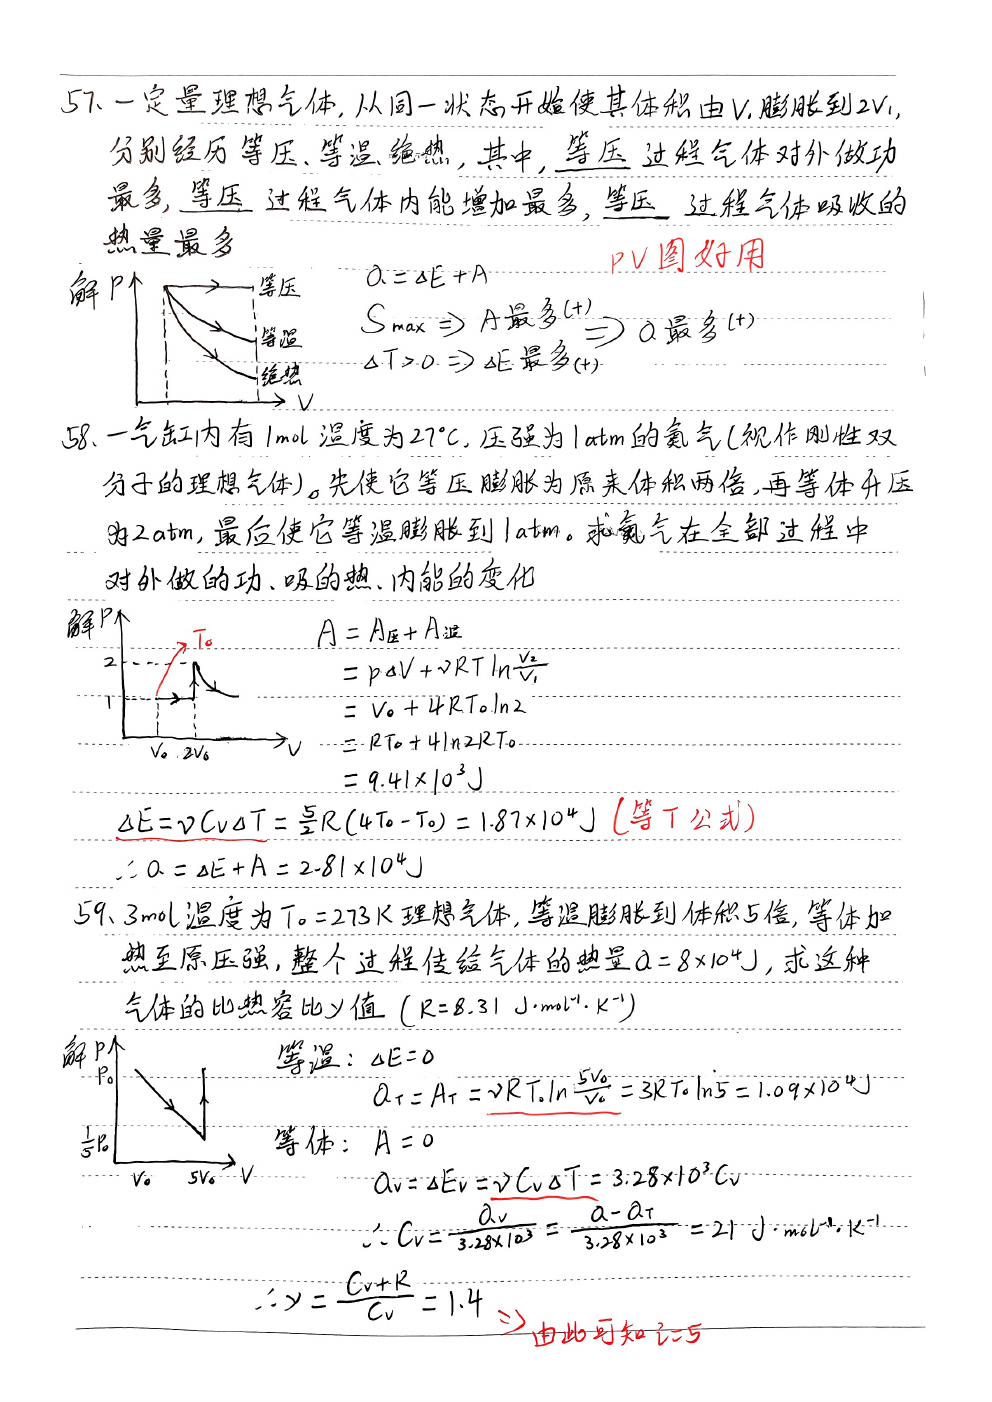 57、一定量理想气体，从同一状态开始使其体积由V₁膨胀到2V₁，
分别经历等压、等温、绝热，其中，等压 过程气体对外做功
最多，等压 过程气体内能增加最多，等压 过程气体吸收的
热量最多
PV图好用
解 P
等压
等温
绝热
V
Q=ΔE+A
Smax ⇒ A最多(+)
⇒ Q最多(+)
ΔT>0 ⇒ ΔE最多(+)
58、一气缸内有1mol温度为27°C，压强为1atm的氮气(视作刚性双
分子的理想气体)。先使它等压膨胀为原来体积两倍，再等体升压
为2atm，最后使它等温膨胀到1atm。求氮气在全部过程中
对外做的功、吸的热、内能的变化
解 P
T₀
2
1
V₀ 2V₀ V
A = A压+A温
= pΔV+νRT ln V₂/V₁
= V₀ + 4RT₀ln2
= RT₀+4ln2RT₀
= 9.41×10³J
ΔE=νCvΔT = 5/2 R(4T₀-T₀) = 1.87×10⁴J (等T公式)
∴ Q=ΔE+A=2.81×10⁴J
59、3mol温度为T₀=273K理想气体，等温膨胀到体积5倍，等体加
热至原压强，整个过程传给气体的热量Q=8×10⁴J，求这种
气体的比热容比γ值 (R=8.31 J·mol⁻¹·K⁻¹)
解 P
P₀
1/5 P₀
V₀ 5V₀ V
等温：ΔE=0
Q_T=A_T=νRT₀ln 5V₀/V₀=3RT₀ln5=1.09×10⁴J
等体：A=0
Qv=ΔEv=νCvΔT=3.28×10³Cv
∴ Cv= Qv/3.28×10³ = Q-Q_T/3.28×10³ = 21 J·mol⁻¹·K⁻¹
∴ γ = Cv+R/Cv = 1.4
⇒ 由此可知i=5